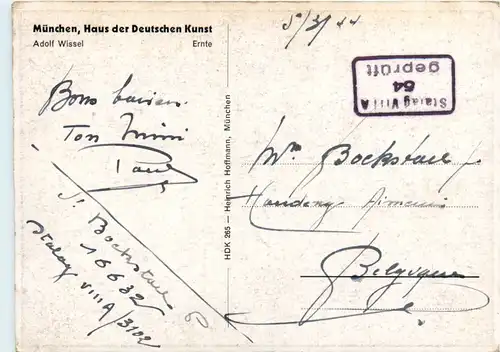 München, Haus der Deutschen Kunst
Adolf Wissel Ernte
5/3/44
Stalag VIII A
54
geprüft
Bons baisers
Ton Mimi
Paul
Bockstael
16632
Stalag VIII A/3102
HDK 265 — Heinrich Hoffmann, München
Mr Bockstael
Belgique